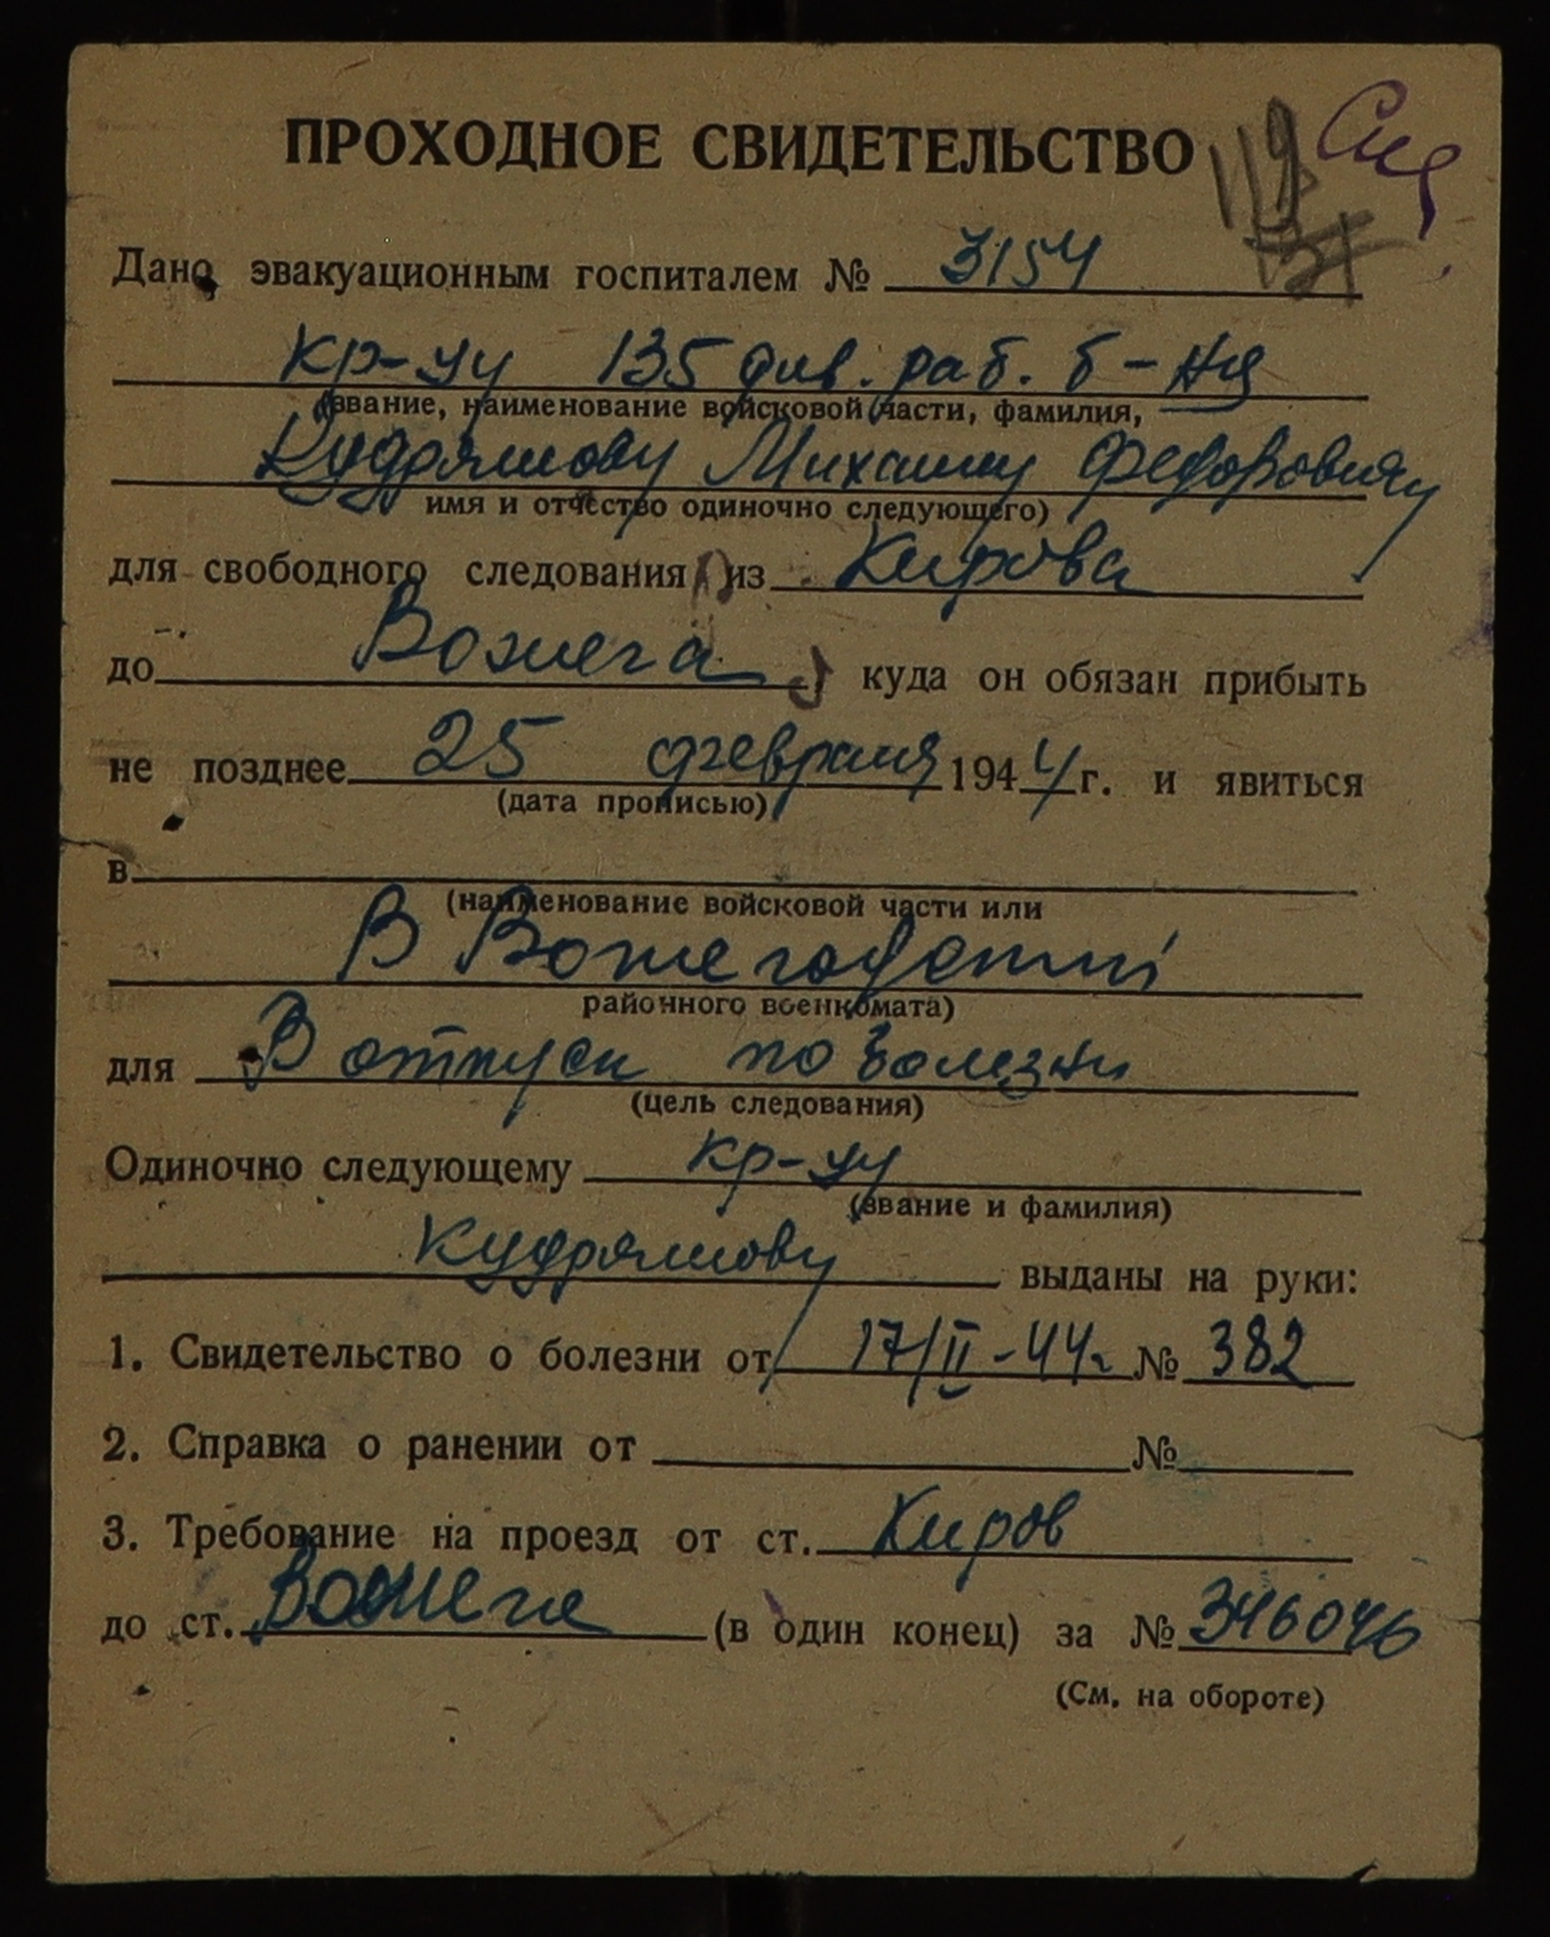 ПРОХОДНОЕ СВИДЕТЕЛЬСТВО
Дано эвакуационным госпиталем № 3154
кр-цу 135 див. раб. б-на
(звание, наименование войсковой части, фамилия,
Кудряшову Михаилу Федоровичу
имя и отчество одиночно следующего)
для свободного следования из Кирова
до Вожега, куда он обязан прибыть
не позднее 25 февраля 1944 г. и явиться
(дата прописью)
в
(наименование войсковой части или
В Вожегодский
районного военкомата)
для В отпуск по болезни
(цель следования)
Одиночно следующему кр-цу
(звание и фамилия)
Кудряшову выданы на руки:
1. Свидетельство о болезни от 17/II-44г № 382
2. Справка о ранении от №
3. Требование на проезд от ст. Киров
до ст. Вожега (в один конец) за № 346046
(См. на обороте)